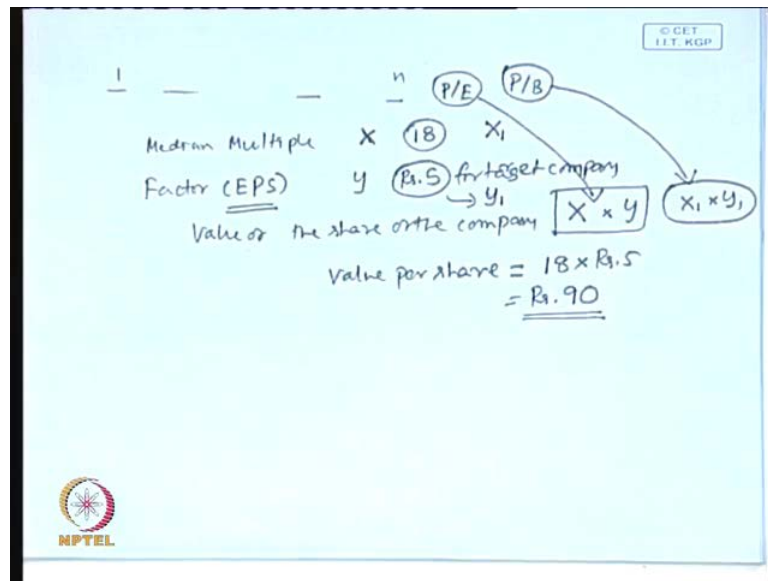 © CET
I.I.T. KGP
1 — — n P/E P/B
Median Multiple X 18 X₁
Factor (EPS) y Rs.5 for target company
→ y₁
Value or the share or the company X × y X₁ × y₁
Value per share = 18 × Rs.5
= Rs.90
NPTEL